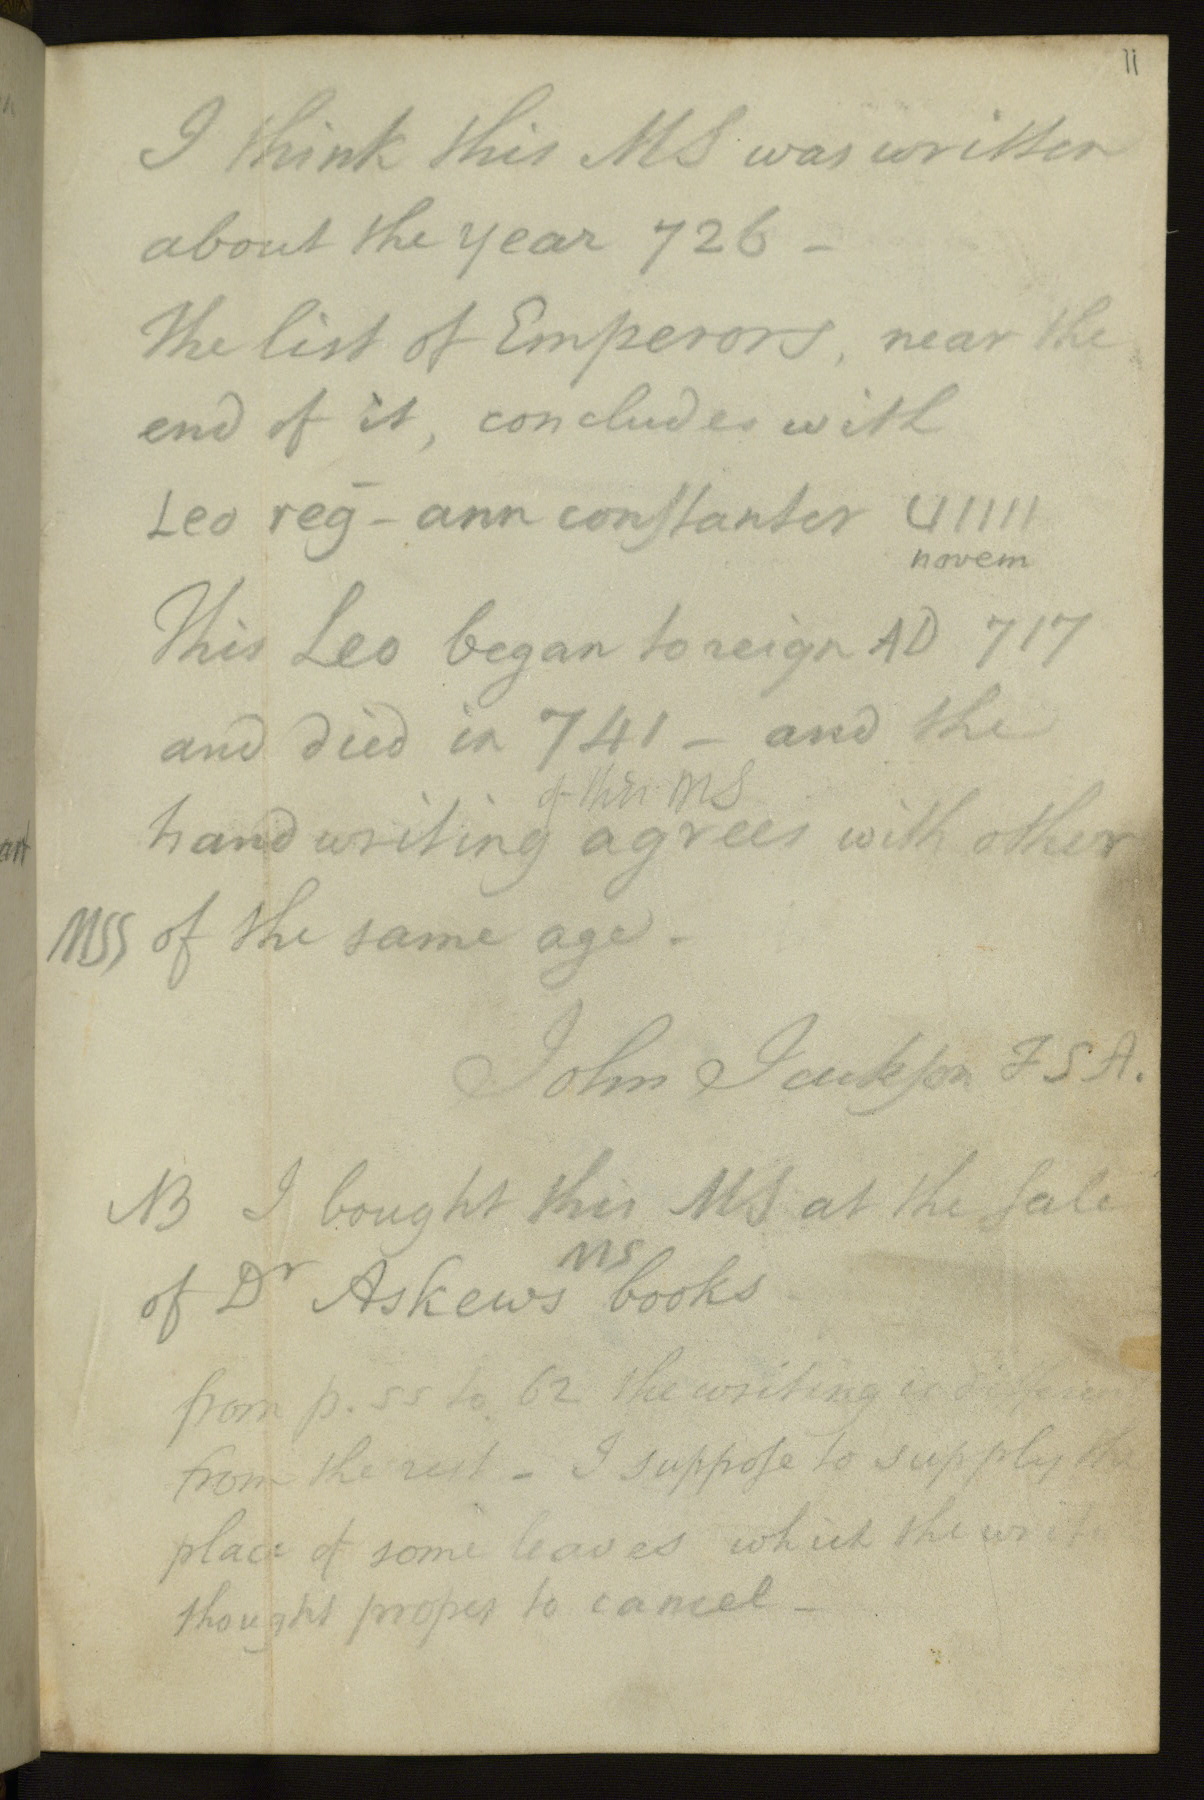 11
I think this MS was written
about the year 726 -
The list of Emperors, near the
end of it, concludes with
Leo reg̅ - ann conſtanter VIIII
novem
This Leo began to reign AD 717
and died in 741 - and the
of this MS
handwriting agrees with other
MSS of the same age -
John Jackson F S A.
NB I bought this MS at the Sale
MS
of Dr Askews books
from p. 55 to 62 the writing is different
from the rest - I suppoſe to supply the
place of some leaves which the write
thought proper to cancel -